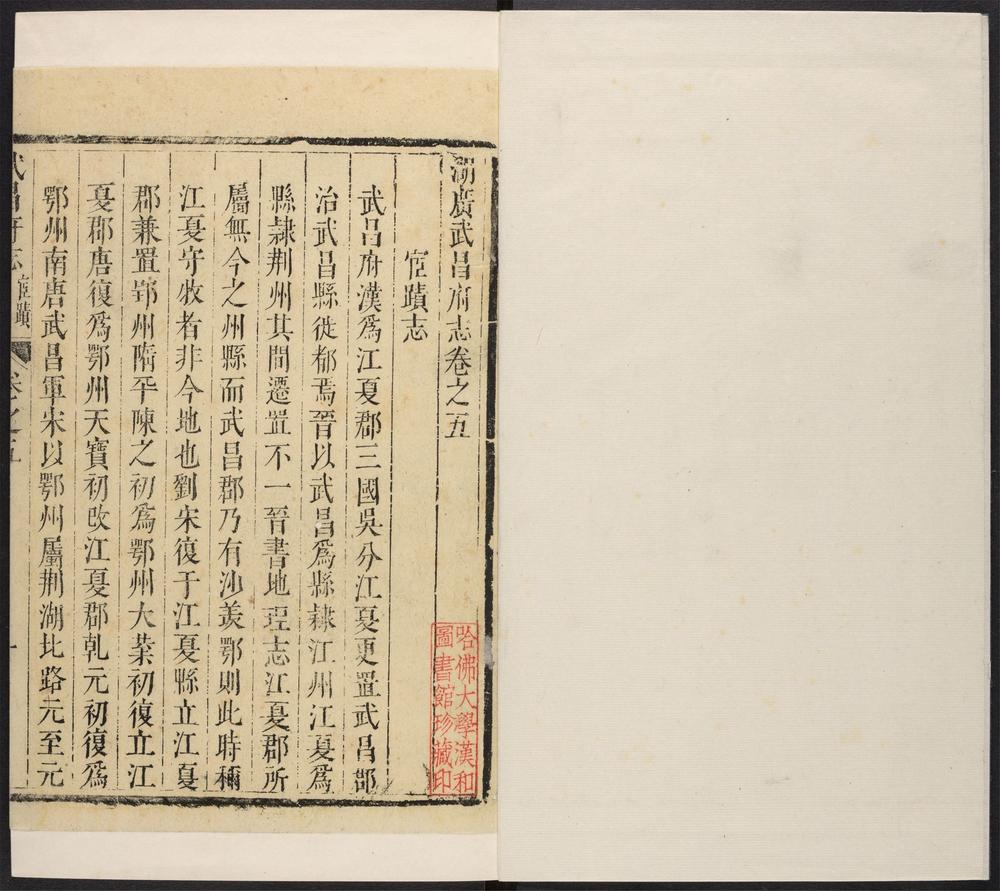 湖廣武昌府志卷之五
宦蹟志
武昌府漢爲江夏郡三國吳分江夏更置武昌郡
治武昌縣徙都焉晉以武昌爲縣隷江州江夏爲
縣隷荆州其間遷置不一晉書地理志江夏郡所
屬無今之州縣而武昌郡乃有沙羨鄂則此時稱
江夏守牧者非今地也劉宋復于江夏縣立江夏
郡兼置郢州隋平陳之初爲鄂州大業初復立江
夏郡唐復爲鄂州天寶初改江夏郡乾元初復爲
鄂州南唐武昌軍宋以鄂州屬荆湖北路元至元
武昌府志
宦蹟
卷之五
一
哈佛大學漢和
圖書館珍藏印